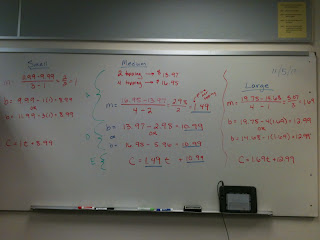 Small
m = 11.99-9.99 / 3-1 = 2/2 = 1
b = 9.99-1(1) = 8.99
or
b = 11.99-3(1) = 8.99
C = 1t + 8.99
Medium
2 topping → $13.97
4 topping → $16.95
m = 16.95-13.97 / 4-2 = 2.98 / 2 = 1.49
b = 13.97-2.98 = 10.99
or
b = 16.95-5.96 = 10.99
C = 1.49t + 10.99
11/5/12
Large
m = 19.75-14.68 / 4-1 = 5.07 / 3 = 1.69
b = 19.75-4(1.69) = 12.99
or
b = 14.68-1(1.69) = 12.99
C = 1.69t + 12.99